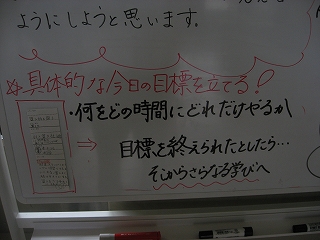 ようにしようと思います。
※具体的な今日の目標を立てる！
・何をどの時間にどれだけやるか
⇒ 目標を終えられたとしたら…
そこからさらなる学びへ